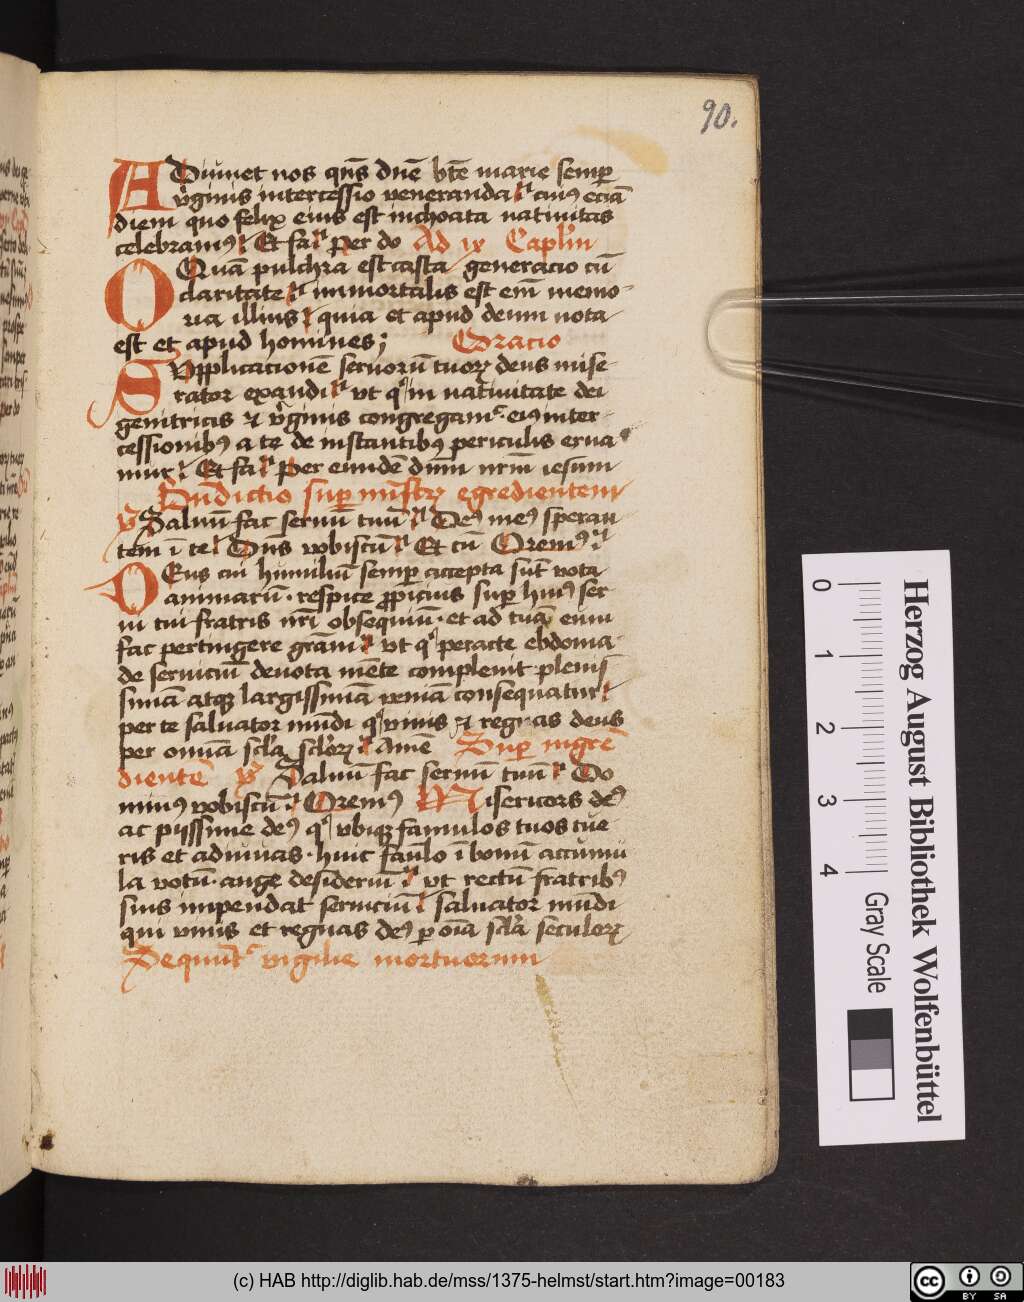 90.
ADiuuet nos qn̄s dn̄e bt̄e marie semp
v̓ginis intercessio veneranda cuius eciā
diem quo felix eius est inchoata natiuitas
celebramꝰ Et fa Per do Ad ix Caplm
O Quā pulchra est casta generacio cū
claritate immortalis est em̄ memo
ria illius quia et apud deum nota
est et apud homines; Oracio
SVpplicacionē seruorū tuoꝝ deus mise
rator exaudi vt qͥ in natiuitate dei
genitricis et v̓ginis congregamᷣ eiꝰ inter
cessionibꝰ a te de instantibꝰ periculis erua
mur Et fa Per eundē dnm nr̄m iesum
super egredientem
Saluū fac seruū tuū Deꝰ meꝰ speran
tem ī te Dn̄s vobiscū Et cū Oremꝰ
DEus cui humiliū semp accepta sūt vota
animarū respice ꝓpicius sup huiꝰ ser
ui tui fratris nr̄i obsequiū et ad tuā eum
fac pertingere grām vt qͥ peracte ebdoma
de seruiciū deuota mēte compleuit pleniſ
simā atqꝫ largissimā veniā consequatur
per te saluator mūdi qͥ viuis et regnas deus
per omīa scl̄a scl̄oꝝ Amē Sup ingre
dientē Saluū fac seruū tuū Do
minꝰ vobiscū Oremꝰ Misericors deꝰ
ac piissime deꝰ qͥ vbiqꝫ famulos tuos tue
ris et adiuuas huic faml̄o ī bonū accumu
la votū auge desideriū vt rectū fratribꝰ
suis impendat seruiciū saluator mūdi
qui viuis et regnas deꝰ p om̄ia scl̄a seculoꝝ
Sequūtᷣ vigilie mortuorum
0 1 2 3 4
Gray Scale
Herzog August Bibliothek Wolfenbüttel
(c) HAB http://diglib.hab.de/mss/1375-helmst/start.htm?image=00183
cc BY SA